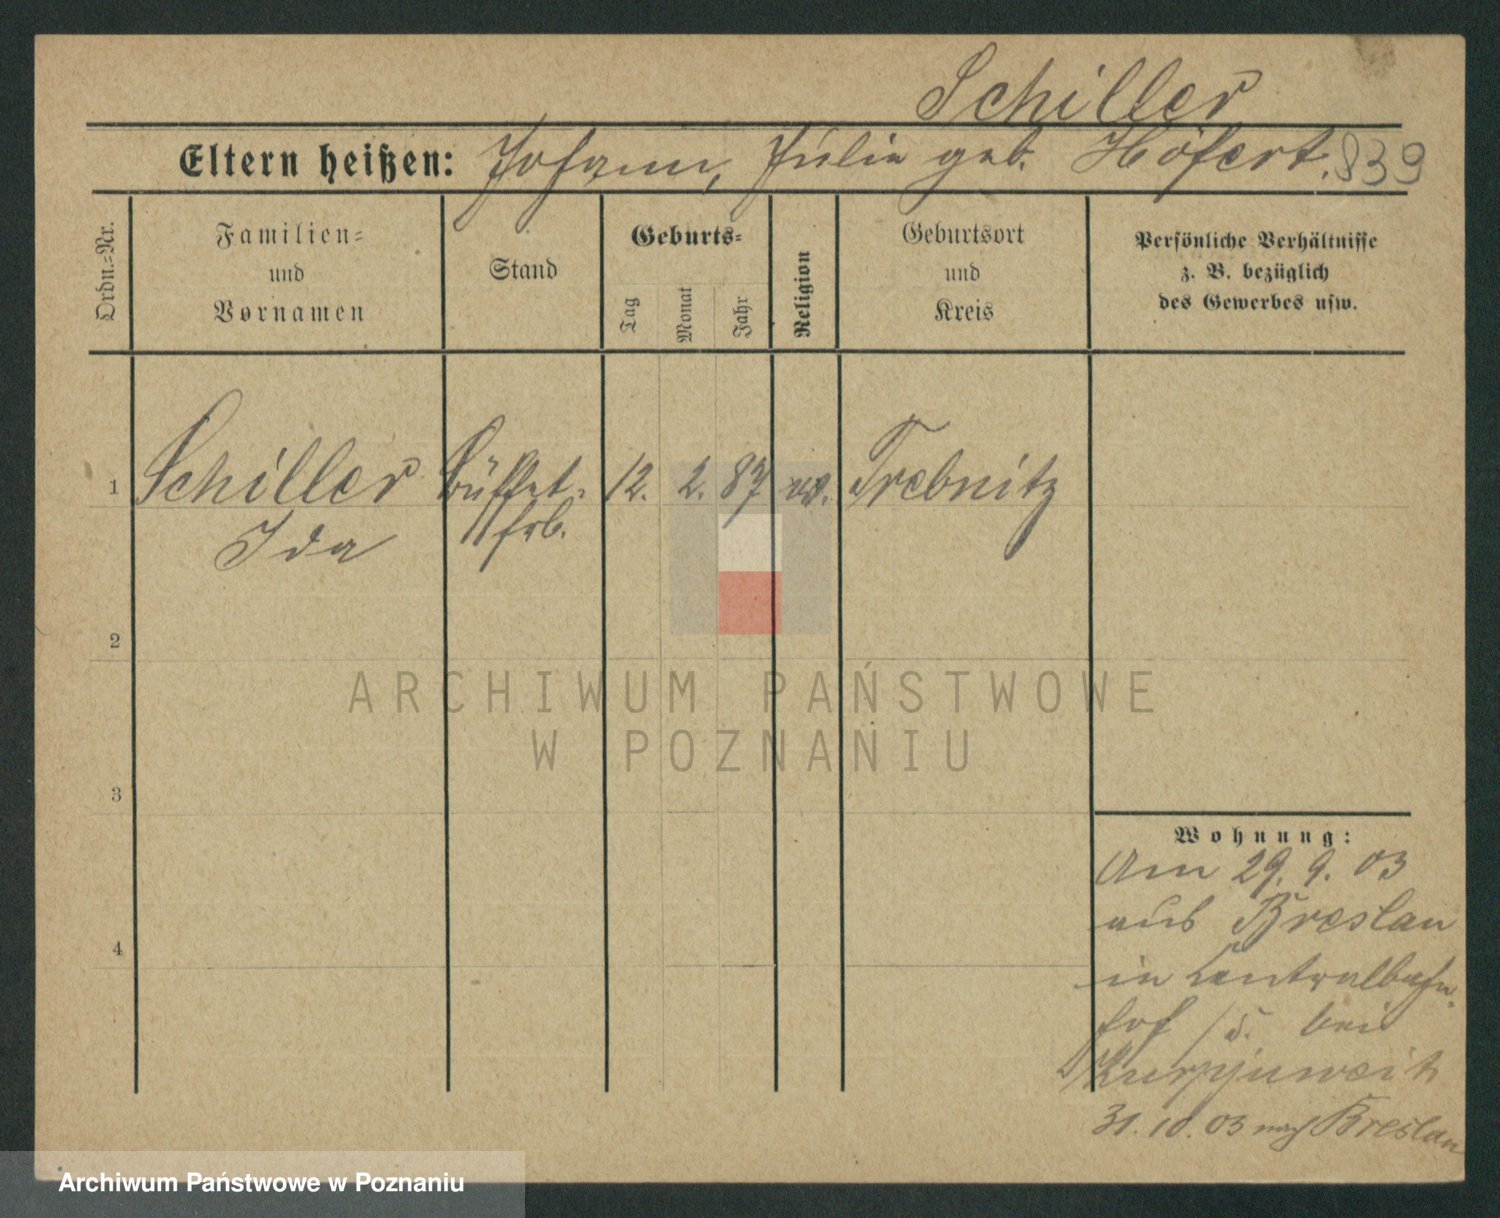 Schiller
Eltern heißen: Johann, Julie geb. Höfert. 839
Ordn.-Nr.
Familien-
und
Vornamen
Stand
Geburts-
Tag
Monat
Jahr
Religion
Geburtsort
und
Kreis
Persönliche Verhältnisse
z. B. bezüglich
des Gewerbes usw.
1 Schiller Büffet- 12. 2. 87 Trebnitz
Ida frl.
2
3
4
ARCHIWUM PAŃSTWOWE
W POZNANIU
Wohnung:
Am 29. 9. 03
aus Breslau
in Centralbahn-
hof bei
31. 10. 03 nach Breslau
Archiwum Państwowe w Poznaniu